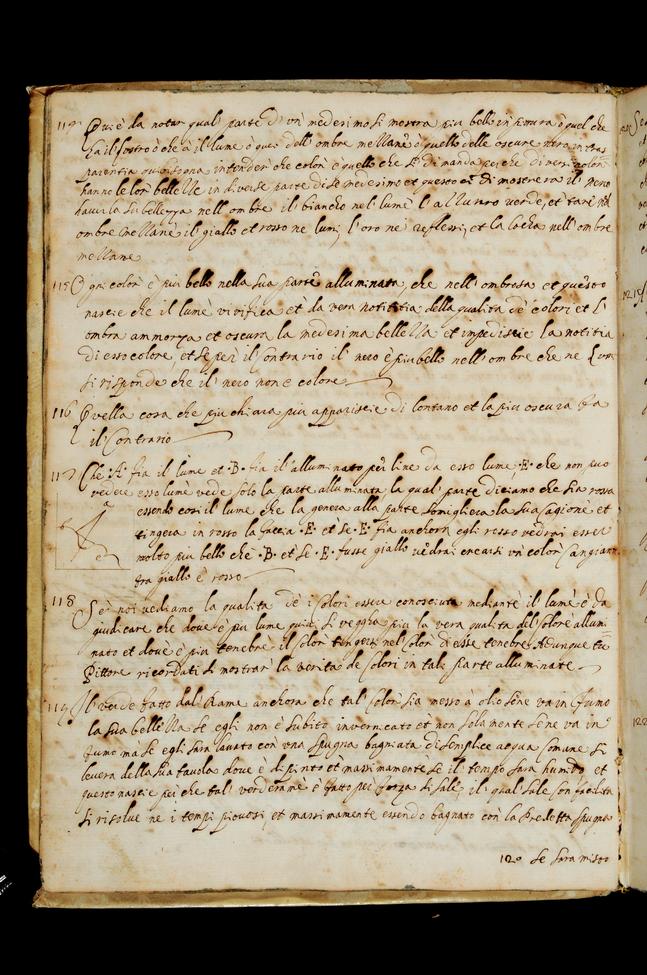 114 Qui è da notar qual parte d'un medesimo si mostra piu bello in pittura ò quel che
ha il lustro ò che à il lume ò quel dell'ombre mezzane ò quello delle oscure overo in tras
parentia qui bisogna intender che color è quello che si dimanda perche diversi colori
hanno le lor bellezze in diverse parte di se medesimo et questo ci mostrera il nero
haver la su bellezza nell'ombre il biancho nel lume l'azzurro verde, et tane nel
ombre mezzane il giallo et rosso ne lumi, l'oro ne reflessi, et la lacha nell'ombre
mezzane
115 Ogni color è piu bello nella sua parte alluminata, che nell'ombrosa et questo
nascie che il lume vivifica et da vera notitia della qualita de colori et l'
ombra ammorza et oscura la medesima bellezza et impediscie la notitia
di esso colore, et se per il contrario il nero è piu bello nell'ombre che ne lumi
si risponde che il nero non è colore
116 Quella cosa che piu chiara piu appariscie di lontano et la piu oscura fa
il contrario
117 Che .A. sia il lume et .B. sia il alluminato per line da esso lume .E. che non puo
vedere esso lume vede solo la parte alluminata la qual parte diciamo che sia rossa
essendo cosi il lume che la genera alla parte somigliera la sua cagione et
tingera in rosso la faccia .E. et se .E. fia anchora egli rosso vedrai essere
molto piu bello che .B. et se .E. fusse giallo vedrai crearsi un color cangiante
fra giallo è rosso
a
e
118 Se noi vediamo la qualita de i colori essere conosciuta mediante il lume è da
giudicare che dove è piu lume quivi si veggha piu la vera qualita del colore allumi
nato et dove è piu tenebre il color tingersi nel color di esse tenebre Adunque tu
Pittore ricordati di mostrar la verita de colori in tale parte alluminate
119 Il verde fatto dal Rame anchora che tal color sia messo à olio sene va in fumo
la sua bellezza se egli non è subito invernicato et non solamente sene va in
fumo ma se egli sara lavato con una spugna bagniata di semplice acqua comune si
levera della sua tavola dove è dipinto et massimamente se il tempo sara humido et
questo nascie perche tal verderame è fatto per forza di sale, il qual sale con facilita
si risolve ne i tempi piovosi, et massimamente essendo bagniato con la predetta spugna
120 Se sara misto